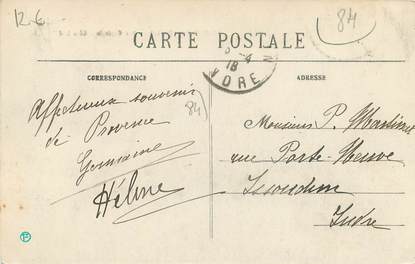 12-6
84
CARTE POSTALE
CORRESPONDANCE
ADRESSE
18
Affectueux souvenir
de Provence
84
Germaine
Hélène
Monsieur P. Martinet
rue Porte-Neuve
Issoudun
Indre